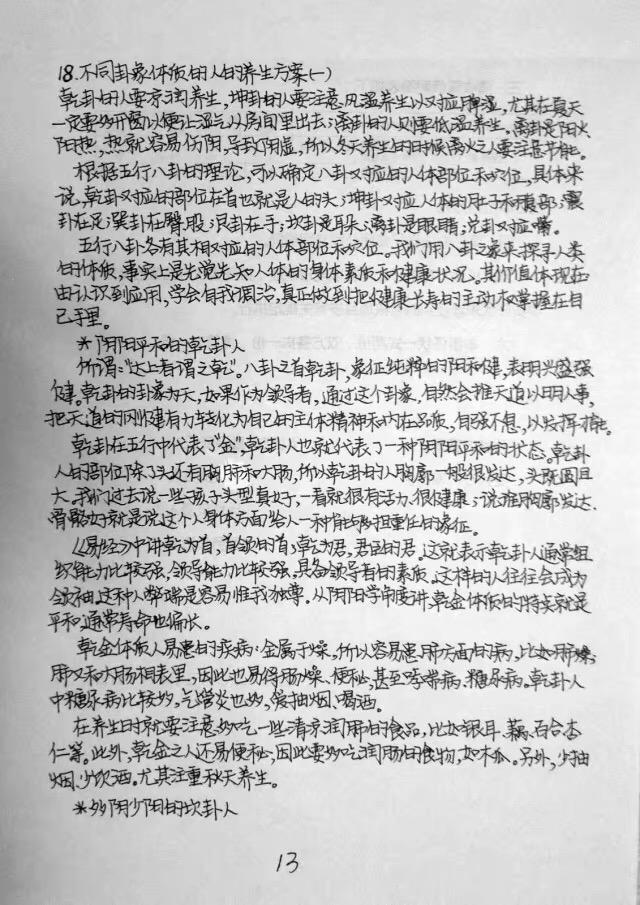 18.不同卦象体质的人的养生方案(一)
乾卦的人要凉润养生,坤卦的人要注意风温养生以对应脾湿,尤其在夏天
一定要多开窗以便让湿气从房间里出去;离卦的人则要低温养生。离卦是阳火、
阳热,热就容易伤阴,导致阴虚,所以冬天养生的时候离火之人要注意节能。
根据五行八卦的理论,可以确定八卦对应的人体部位和穴位,具体来
说,乾卦对应的部位在首也就是人的头;坤卦对应人体的肚子和腹部;震
卦在足;巽卦在臀、股;艮卦在手;坎卦是耳朵;离卦是眼睛;兑卦对应嘴。
五行八卦各有其相对应的人体部位和穴位。我们用八卦之象来探寻人类
的体质,事实上是先觉先知人体的身体素质和健康状况。其价值体现在
由认识到应用,学会自我调治,真正做到把健康长寿的主动权掌握在自
己手里。
*阴阳平和的乾卦人
所谓:“太上者谓之乾”。八卦之首乾卦,象征纯粹的阳和健,表明兴盛强
健。乾卦的卦象为天,如果作为领导者,通过这个卦象,自然会推天道以明人事,
把天道的刚健有力转化为自己的主体精神和内在品质,自强不息,以发挥才能。
乾卦在五行中代表了“金”,乾卦人也就代表了一种阴阳平和的状态。乾卦
人的部位除了头还有胸、肺和大肠,所以乾卦的人胸廓一般很发达,头既圆且
大。我们过去说一些孩子头型真好,一看就很有活力、很健康;说谁胸廓发达、
骨骼好就是说这个人身体方面给人一种能够担重任的象征。
《易经》中讲乾为首,首领的首;乾为君,君臣的君。这就表示乾卦人通常组
织能力比较强,领导能力比较强,具备领导者的素质。这样的人往往会成为
领袖。这种人弊端是容易惟我独尊。从阴阳学角度讲,乾金体质的特质就是
平和,通常寿命也偏长。
乾金体质人易患的疾病:金属于燥,所以容易患肺方面的病,比如肺燥;
肺又和大肠相表里,因此也易得肠燥、便秘,甚至哮喘病、糖尿病。乾卦人
中糖尿病比较多,气管炎也多,爱抽烟、喝酒。
在养生时就要注意多吃一些清凉润肺的食品,比如银耳、藕、百合、杏
仁等。此外,乾金之人还易便秘,因此要多吃润肠的食物,如木瓜。另外,少抽
烟、少饮酒。尤其注重秋天养生。
*多阴少阳的坎卦人
13